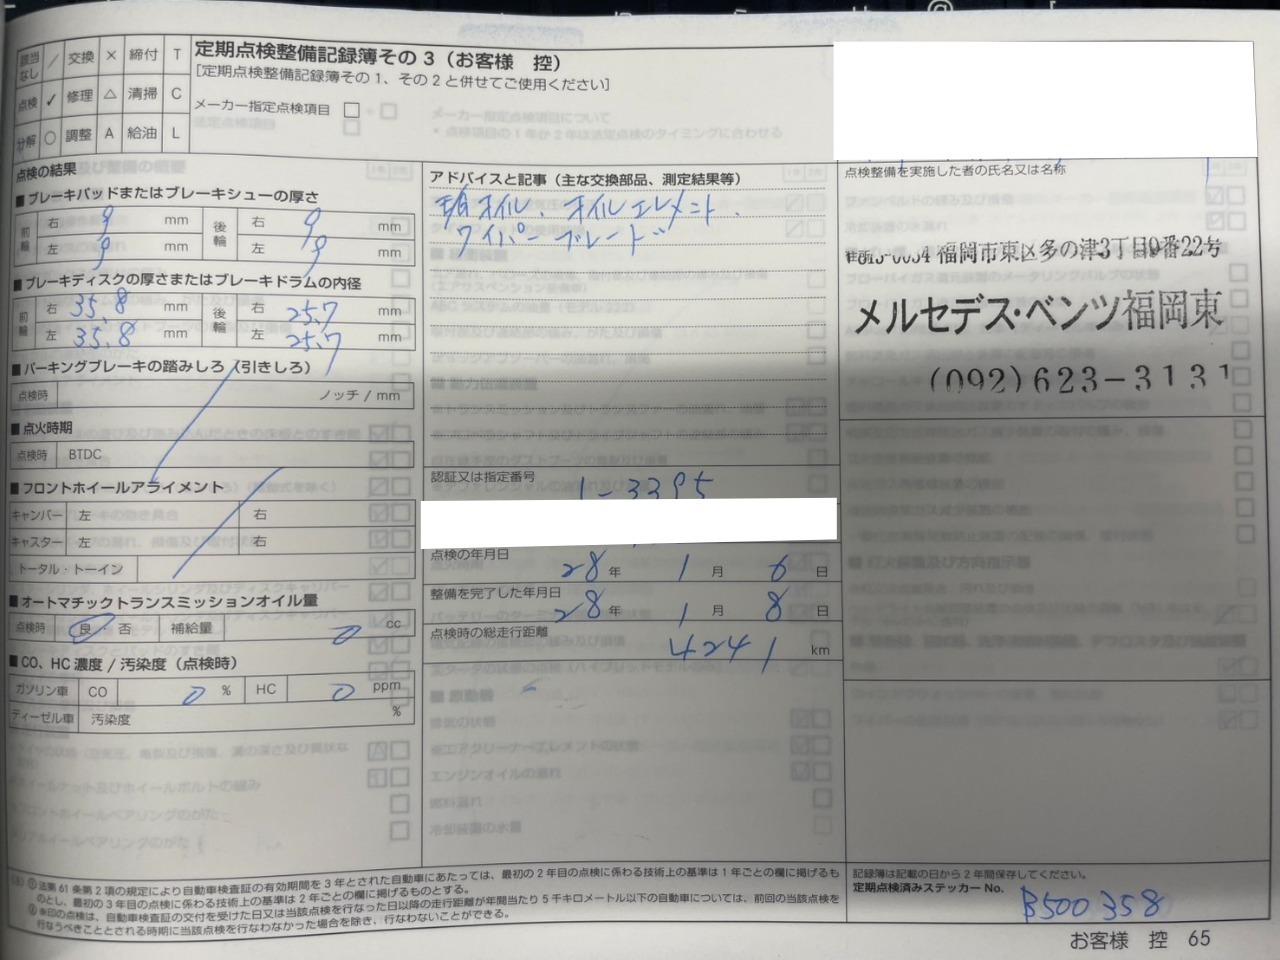 定期点検整備記録簿その3(お客様 控)
[定期点検整備記録簿その1、その2と併せてご使用ください]
該当なし / 交換 × 締付 T
点検 ✓ 修理 △ 清掃 C
分解 ○ 調整 A 給油 L
メーカー指定点検項目 □
点検の結果
■ブレーキパッドまたはブレーキシューの厚さ
前輪 右 9 mm 後輪 右 9 mm
左 9 mm 左 9 mm
■ブレーキディスクの厚さまたはブレーキドラムの内径
前輪 右 35.8 mm 後輪 右 25.7 mm
左 35.8 mm 左 25.7 mm
■パーキングブレーキの踏みしろ(引きしろ)
点検時 ノッチ / mm
■点火時期
点検時 BTDC
■フロントホイールアライメント
キャンバー 左 右
キャスター 左 右
トータル・トーイン
■オートマチックトランスミッションオイル量
点検時 良 否 補給量 0 cc
■CO、HC濃度 / 汚染度(点検時)
ガソリン車 CO 0 % HC 0 ppm
ディーゼル車 汚染度 %
アドバイスと記事(主な交換部品、測定結果等)
オイル、オイルエレメント、
ワイパーブレード
認証又は指定番号
1-3395
点検の年月日
28 年 1 月 6 日
整備を完了した年月日
28 年 1 月 8 日
点検時の総走行距離
4241 km
点検整備を実施した者の氏名又は名称
福岡市東区多の津3丁目9番22号
メルセデス・ベンツ福岡東
(092)623-3131
(注) ①法第61条第2項の規定により自動車検査証の有効期間を3年とされた自動車にあたっては、最初の2年目の点検に係わる技術上の基準は1年ごとの欄に掲げるも
のとし、最初の3年目の点検に係わる技術上の基準は2年ごとの欄に掲げるものとする。
②※印の点検は、自動車検査証の交付を受けた日又は当該点検を行なった日以降の走行距離が年間当たり5千キロメートル以下の自動車については、前回の当該点検を
行なうべきこととされる時期に当該点検を行なわなかった場合を除き、行なわないことができる。
記録簿は記載の日から2年間保存してください。
定期点検済みステッカーNo.
B500358
お客様 控 65